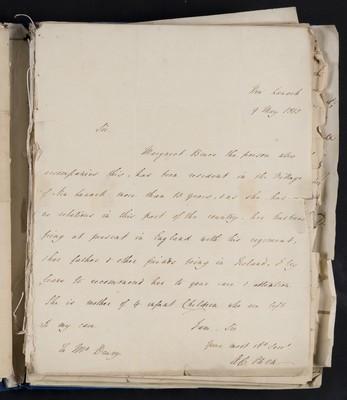 New Lanark
9 May 1815
Sir
Margaret Bruce the person who
accompanies this, has been resident in the Village
of New Lanark more than 13 years, & as she has
no relations in this part of the country, her husband
being at present in England with his regiment,
& her father & other friends being in Ireland, I beg
leave to recommend her to your care & attention.
She is mother of 4 infant Children who are left
to my care.
I am, Sir
Your most
To Mr